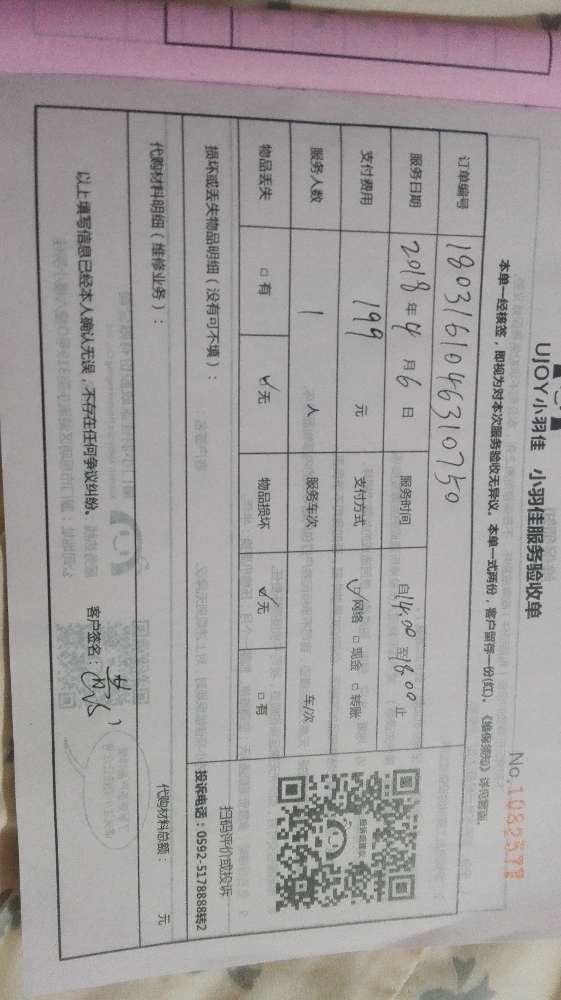 UJOY小羽佳 小羽佳服务验收单
No.1082579
本单一经核签，即视为对本次服务验收无异议。本单一式两份，客户留存一份(红)。《维保须知》详见背面。
订单编号 1803161046310750
服务日期 2018年4月6日 服务时间 自14:00至18:00止
支付费用 199 元 支付方式 ✓网络 □现金 □转账
服务人数 1 人 服务车次 车/次
物品丢失 □有 ✓无 物品损坏 ✓无 □有
投诉或建议
扫码评价或投诉
投诉电话：0592-5178888转2
损坏或丢失物品明细（没有可不填）：
代购材料明细（维修业务）： 代购材料总额： 元
以上填写信息已经本人确认无误，不存在任何争议纠纷。 客户签名：